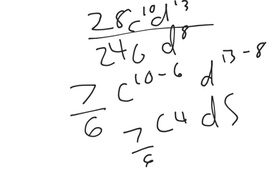 28c¹⁰d¹³
24c d⁸
7/6 c¹⁰⁻⁶ d¹³⁻⁸
7/6 c4 d5